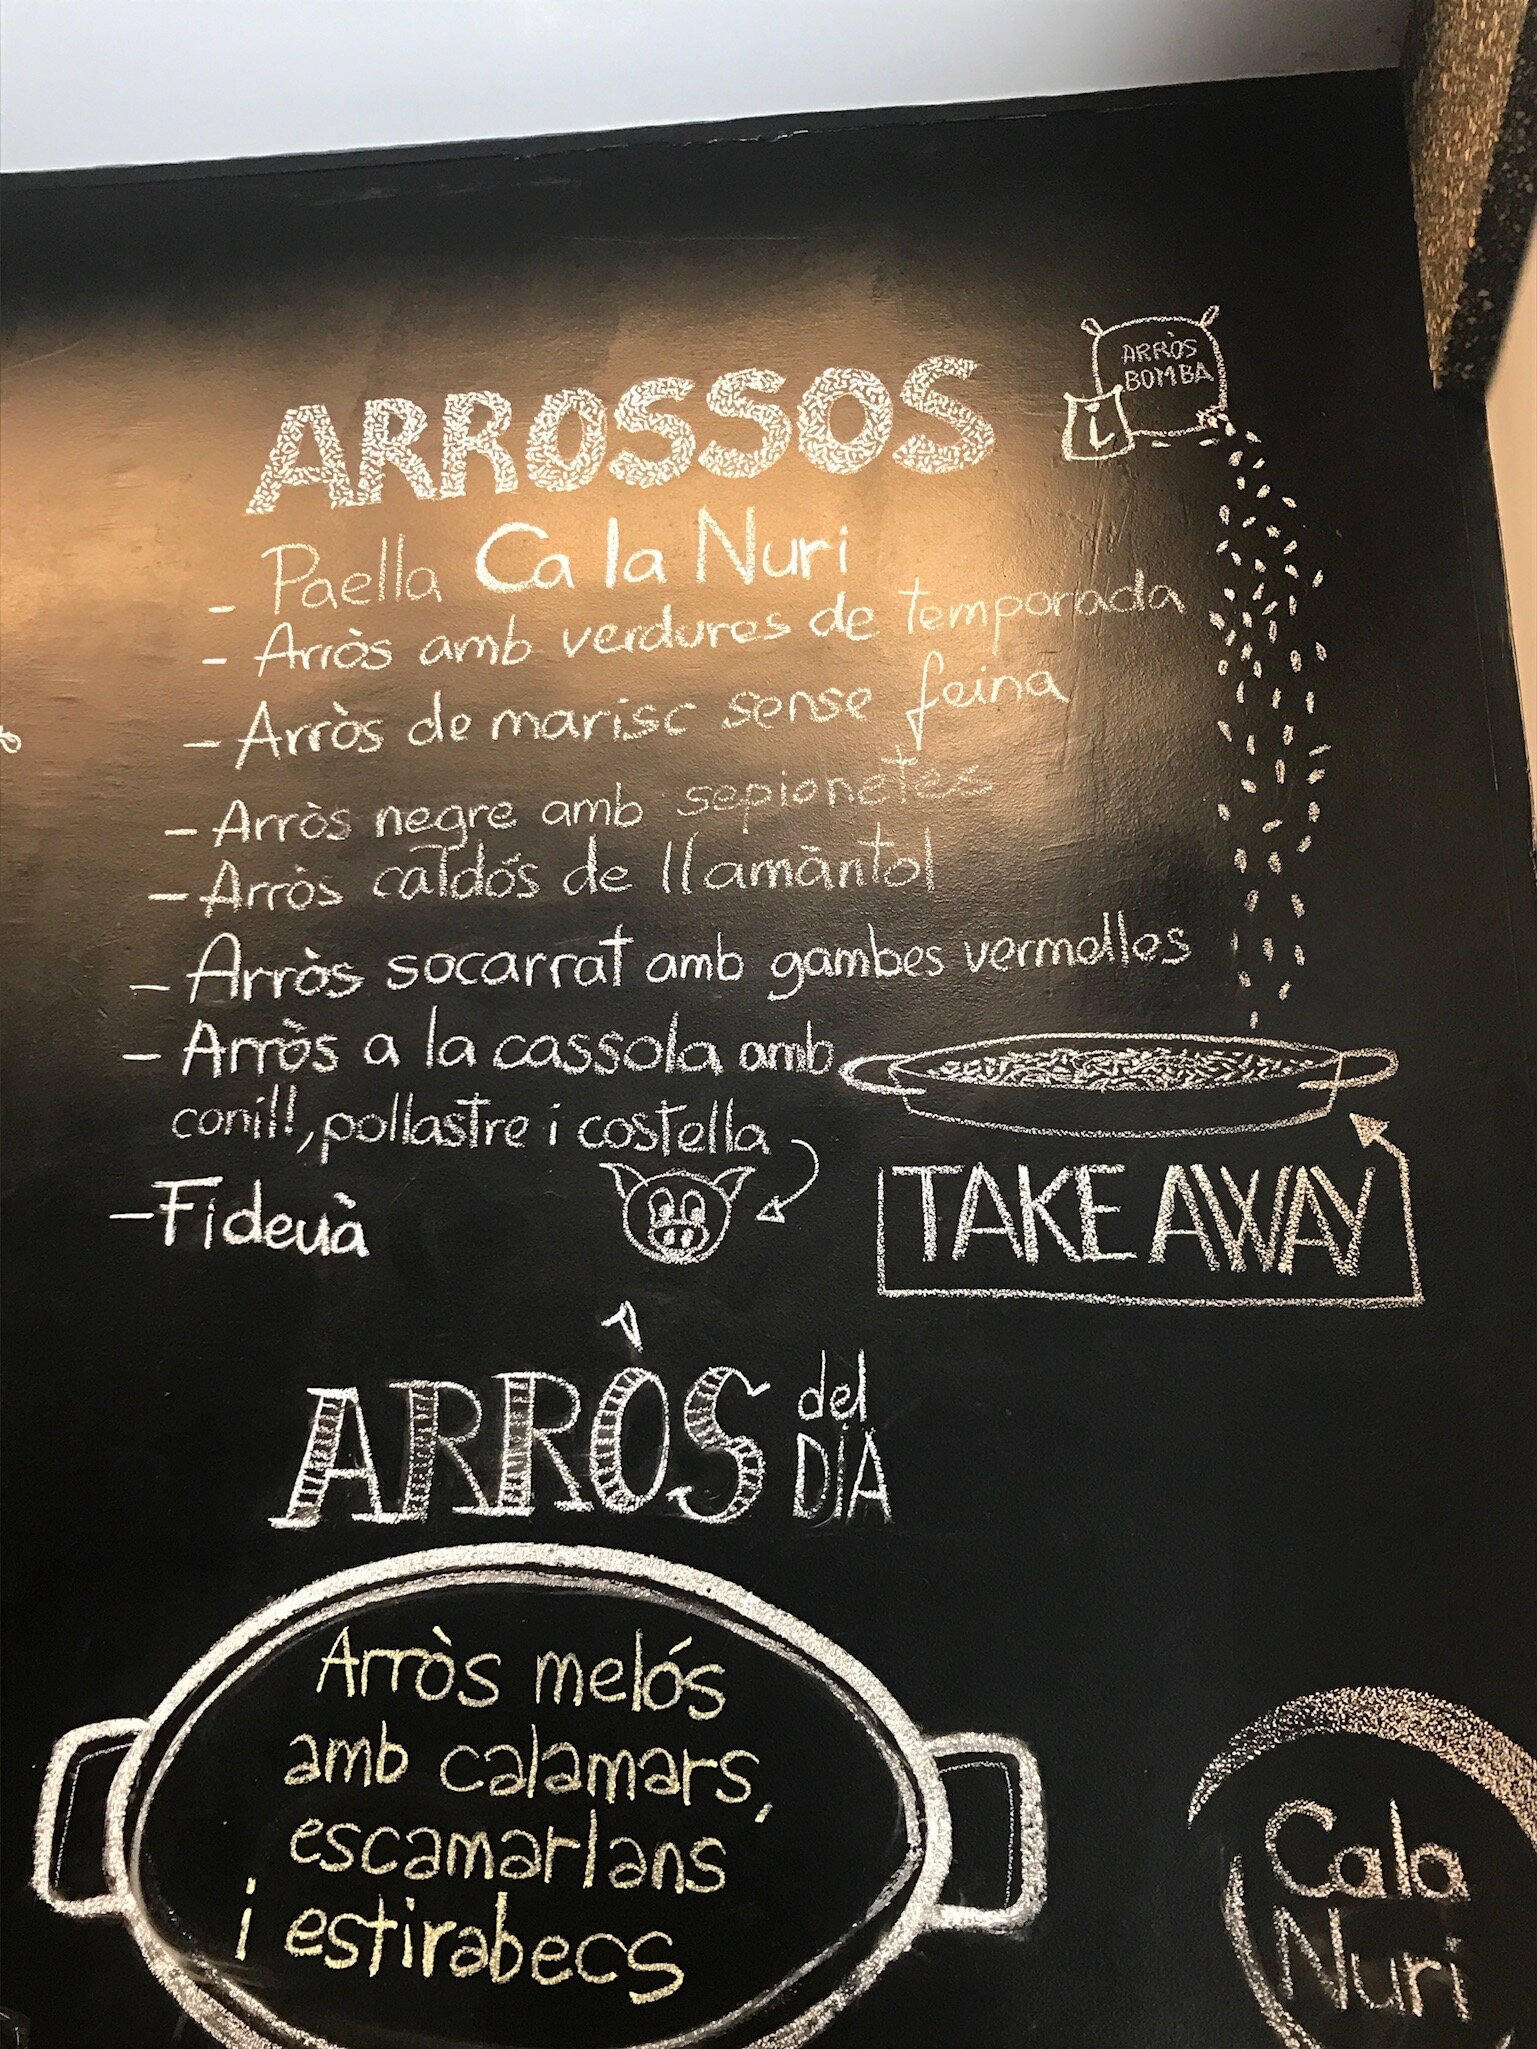 ARRÒS
BOMBA
ARROSSOS
- Paella Ca la Nuri
- Arròs amb verdures de temporada
- Arròs de marisc sense feina
- Arròs negre amb sepionetes
- Arròs caldós de llamàntol
- Arròs socarrat amb gambes vermelles
- Arròs a la cassola amb
conill, pollastre i costella
- Fideuà
TAKE AWAY
ARRÒS del
DIA
Arròs melós
amb calamars,
escamarlans
i estirabecs
Cala
Nuri